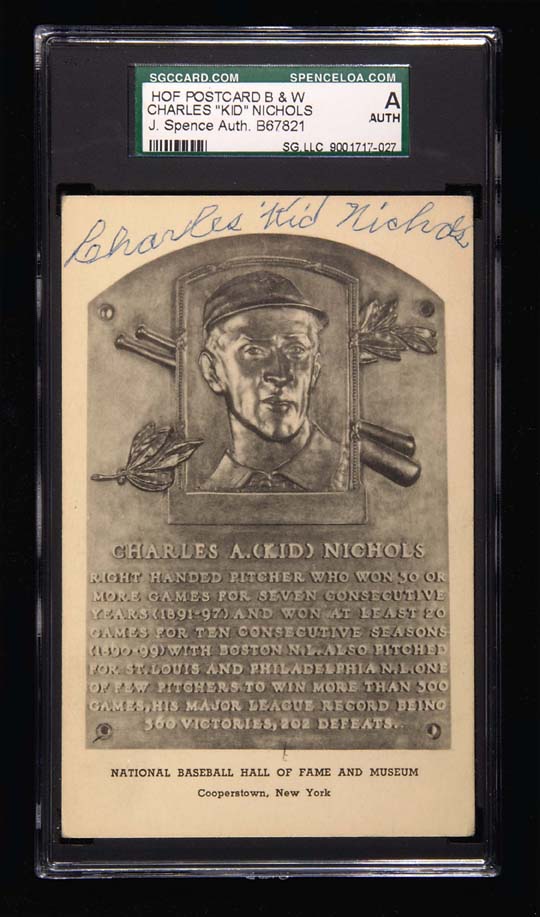 SGCCARD.COM SPENCELOA.COM
HOF POSTCARD B & W
CHARLES "KID" NICHOLS
J. Spence Auth. B67821
A
AUTH
SG,LLC 9001717-027
Charles "Kid" Nichols
CHARLES A.(KID) NICHOLS
RIGHT HANDED PITCHER WHO WON 30 OR
MORE GAMES FOR SEVEN CONSECUTIVE
YEARS (1891-97) AND WON AT LEAST 20
GAMES FOR TEN CONSECUTIVE SEASONS
(1890-99) WITH BOSTON N.L. ALSO PITCHED
FOR ST. LOUIS AND PHILADELPHIA N.L. ONE
OF FEW PITCHERS TO WIN MORE THAN 300
GAMES, HIS MAJOR LEAGUE RECORD BEING
360 VICTORIES, 202 DEFEATS.
NATIONAL BASEBALL HALL OF FAME AND MUSEUM
Cooperstown, New York